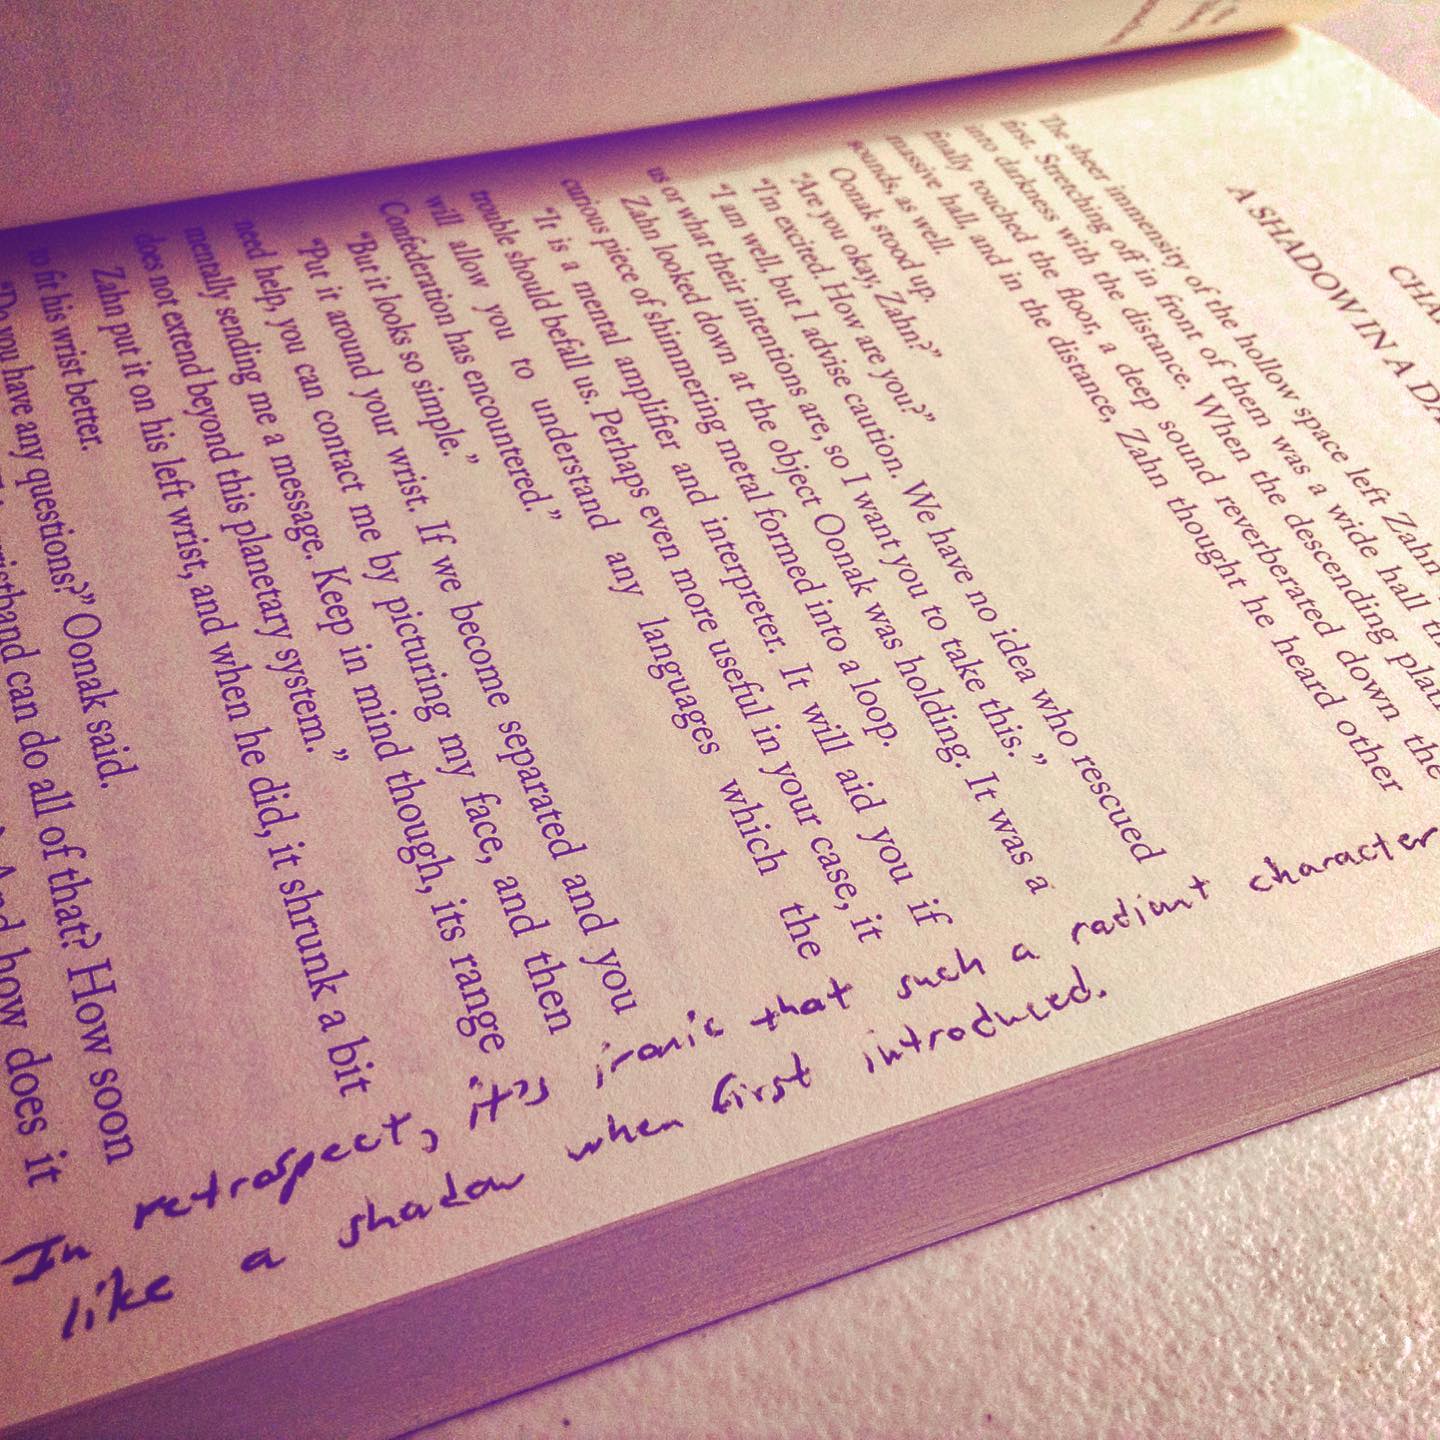 A SHADOW IN A
The sheer immensity of the hollow space left Zahn
first. Stretching off in front of them was a wide hall
into darkness with the distance. When the descending
finally touched the floor, a deep sound reverberated down the
massive hall, and in the distance, Zahn thought he heard other
sounds, as well.
Oonak stood up.
“Are you okay, Zahn?”
“I'm excited. How are you?”
“I am well, but I advise caution. We have no idea who rescued
us or what their intentions are, so I want you to take this.”
Zahn looked down at the object Oonak was holding. It was a
curious piece of shimmering metal formed into a loop.
“It is a mental amplifier and interpreter. It will aid you if
trouble should befall us. Perhaps even more useful in your case, it
will allow you to understand any languages which the
Confederation has encountered.”
“But it looks so simple.”
“Put it around your wrist. If we become separated and you
need help, you can contact me by picturing my face, and then
mentally sending me a message. Keep in mind though, its range
does not extend beyond this planetary system.”
Zahn put it on his left wrist, and when he did, it shrunk a bit
to fit his wrist better.
“Do you have any questions?” Oonak said.
can do all of that? How soon
how does it
In retrospect, it's ironic that such a radiant character
like a shadow when first introduced.